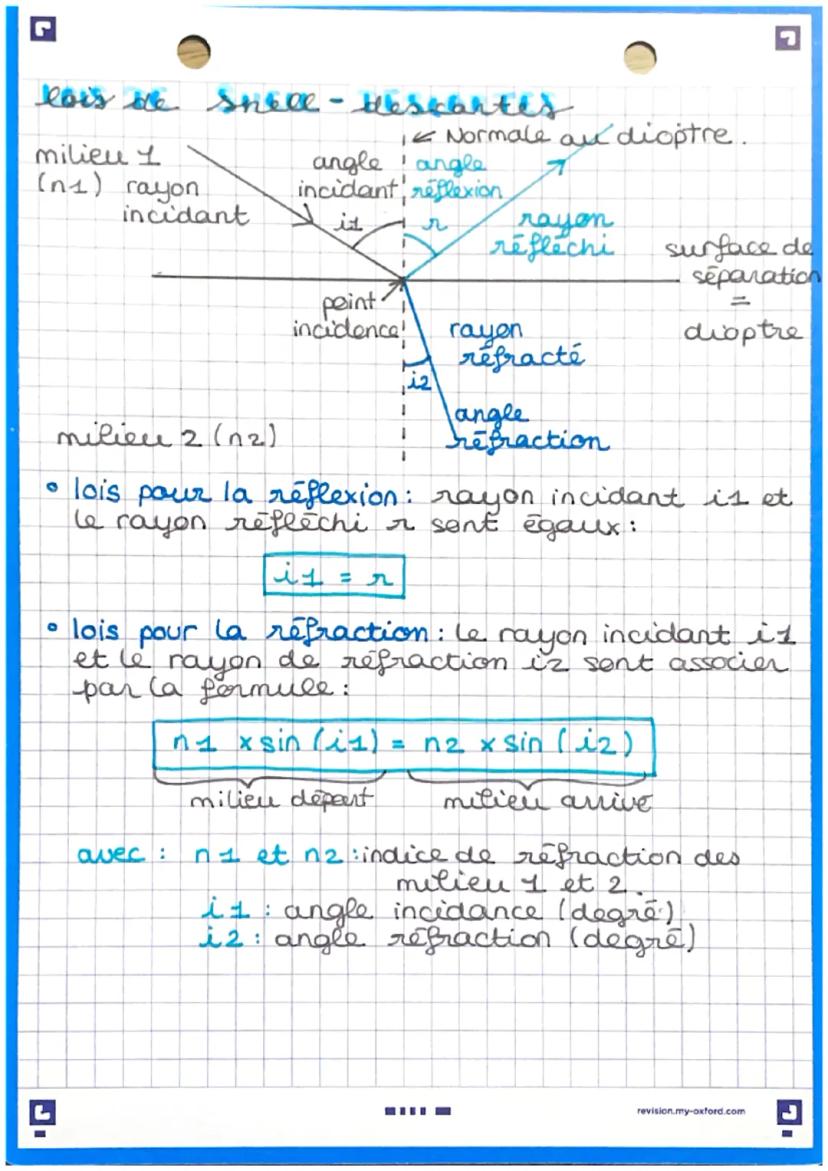 lois de snell - descartes
← Normale au dioptre.
milieu 1
(n1) rayon
incidant
angle
incidant
angle
réflexion
i1
r
rayon
réfléchi
surface de
séparation
=
dioptre
point
incidence
rayon
réfracté
i2
angle
réfraction
milieu 2 (n2)
• lois pour la réflexion: rayon incidant i1 et
le rayon réfléchi r sont égaux:
i1 = r
• lois pour la réfraction: le rayon incidant i1
et le rayon de réfraction i2 sont associer
par la formule:
n1 x sin (i1) = n2 x sin (i2)
milieu départ
milieu arrivé
avec : n1 et n2 : indice de réfraction des
milieu 1 et 2.
i1 : angle incidance (degré)
i2 : angle réfraction (degré)
revision.my-oxford.com